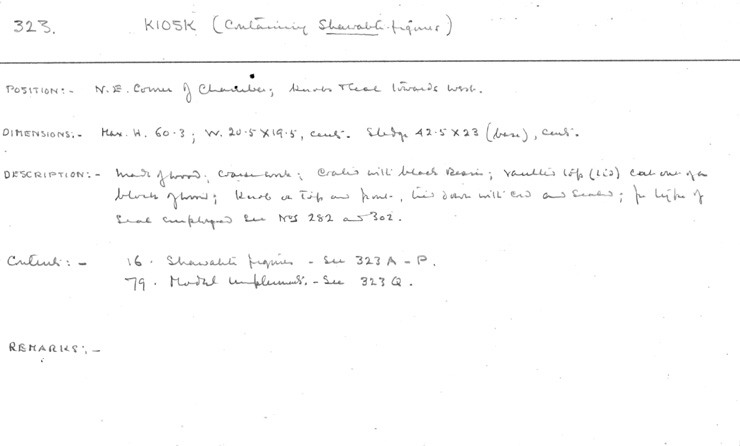 323. KIOSK (Containing Shawabti-figures)
POSITION:- N.E. Corner of Chamber; knobs towards West.
DIMENSIONS:- Max. H. 60.3; W. 20.5 X 19.5, cents. Sledge 42.5 X 23 (base), cents.
DESCRIPTION:- Made of wood; coarse work; Coated with black Resin; vaulted top (lid) cut out of a
block of wood; knob on top and front, tied down with cord and sealed; for type of
Seal employed see Nos 282 and 302.
Contents:- 16. Shawabti figures - See 323 A - P.
79. Model implements. - See 323 Q.
REMARKS:-